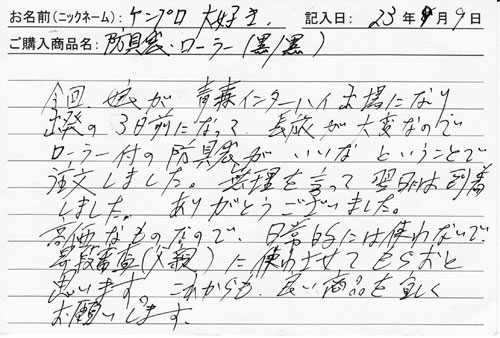 お名前(ニックネーム): ケンプロ 大好き. 記入日: 23年 9月 9日
ご購入商品名: 防具袋・ローラー(黒/黒)
今回、娘が 青森インターハイ出場になり
出発の 3日前になって、長旅が大変なので
ローラー付の防具袋が いいな ということで
注文しました。無理を言って 翌日には到着
しました。ありがとうございました。
高価なものなので、日常的には使わないで、
昇段審査(父親)に使わせてもらおと
思います。これからも、良い商品を宜しく
お願いします。